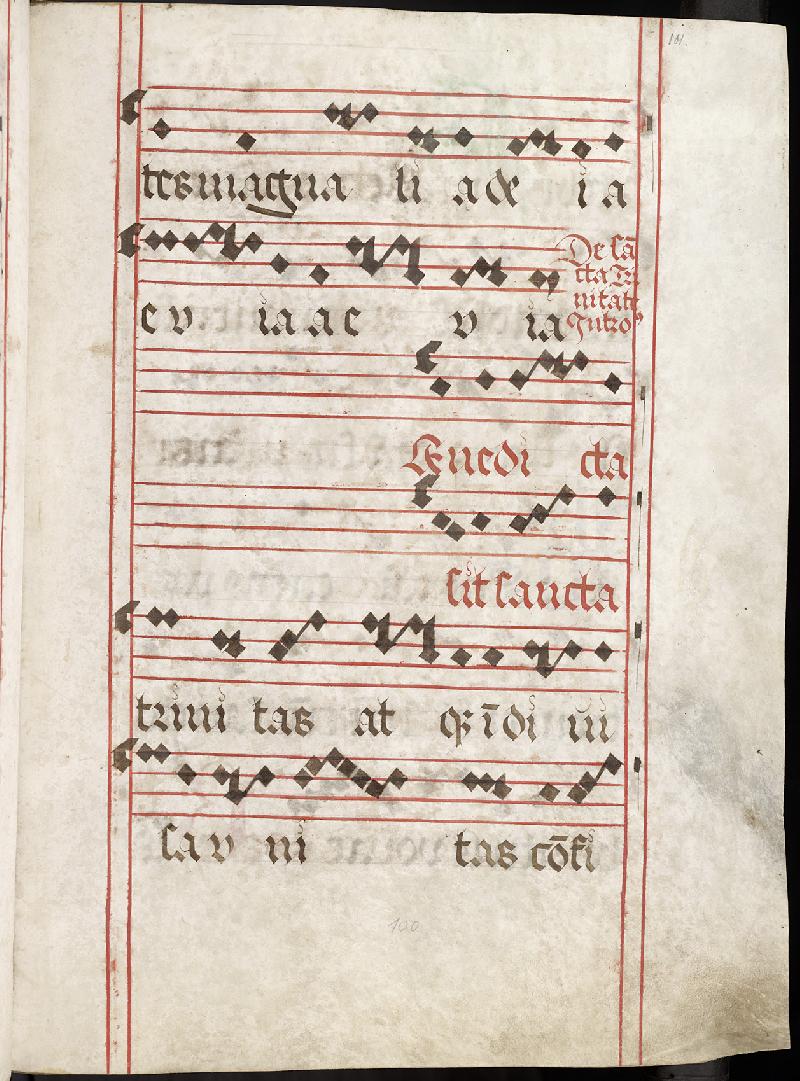 101.
tes magna li a de i a
e v ia a e v ia
De sā
cta Tri
nitate
Introꝰ
Benedi cta
sit sancta
trini tas at qꝫ īdi ui
sa v ni tas cōfi
100